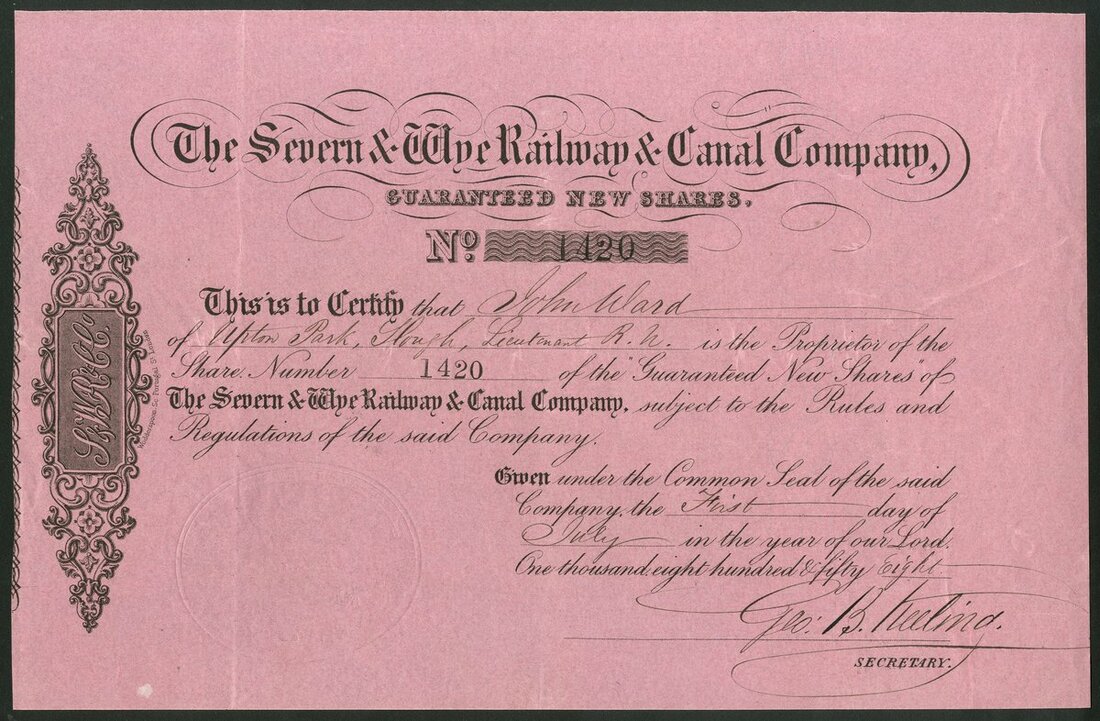 The Severn & Wye Railway & Canal Company,
GUARANTEED NEW SHARES.
No. 1420
This is to Certify that John Ward
of Upton Park, Slough, Lieutenant R. N. is the Proprietor of the
Share Number 1420 of the "Guaranteed New Shares" of
The Severn & Wye Railway & Canal Company, subject to the Rules and
Regulations of the said Company.
Given under the Common Seal of the said
Company, the First day of
July in the year of our Lord.
One thousand eight hundred & fifty Eight
Geo: B. Keeling.
SECRETARY.
S & W R & C Co